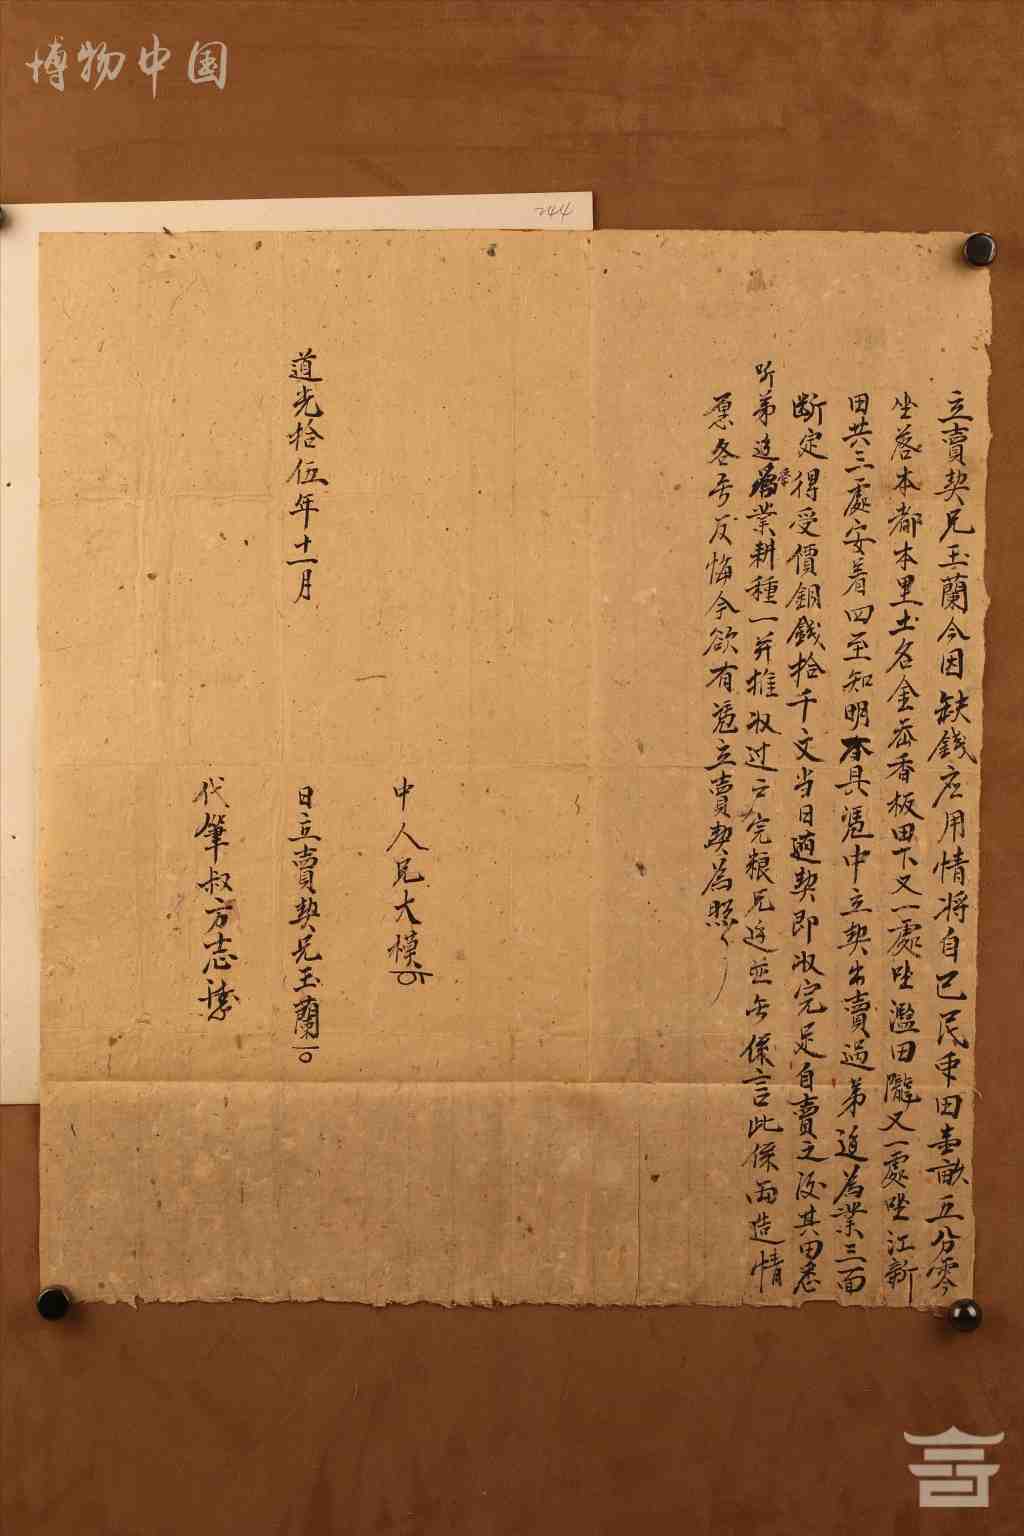 博物中国
244
立賣契兄玉蘭今因缺錢应用情将自己民田壹畝五分零
坐落本都本里土名金岙香板田下又一處坐濫田隴又一處坐江新
田共三處安着四至知明不具憑中立契出賣過弟邊為業三面
断定得受價銅錢拾千文当日随契即收完足自賣之後其田悉
听弟边管業耕種一并推收过户完粮兄边並无係言此係两造情
愿各无反悔今欲有憑立賣契為照
中人兄大模
道光拾伍年十一月
日立賣契兄玉蘭
代筆叔方志